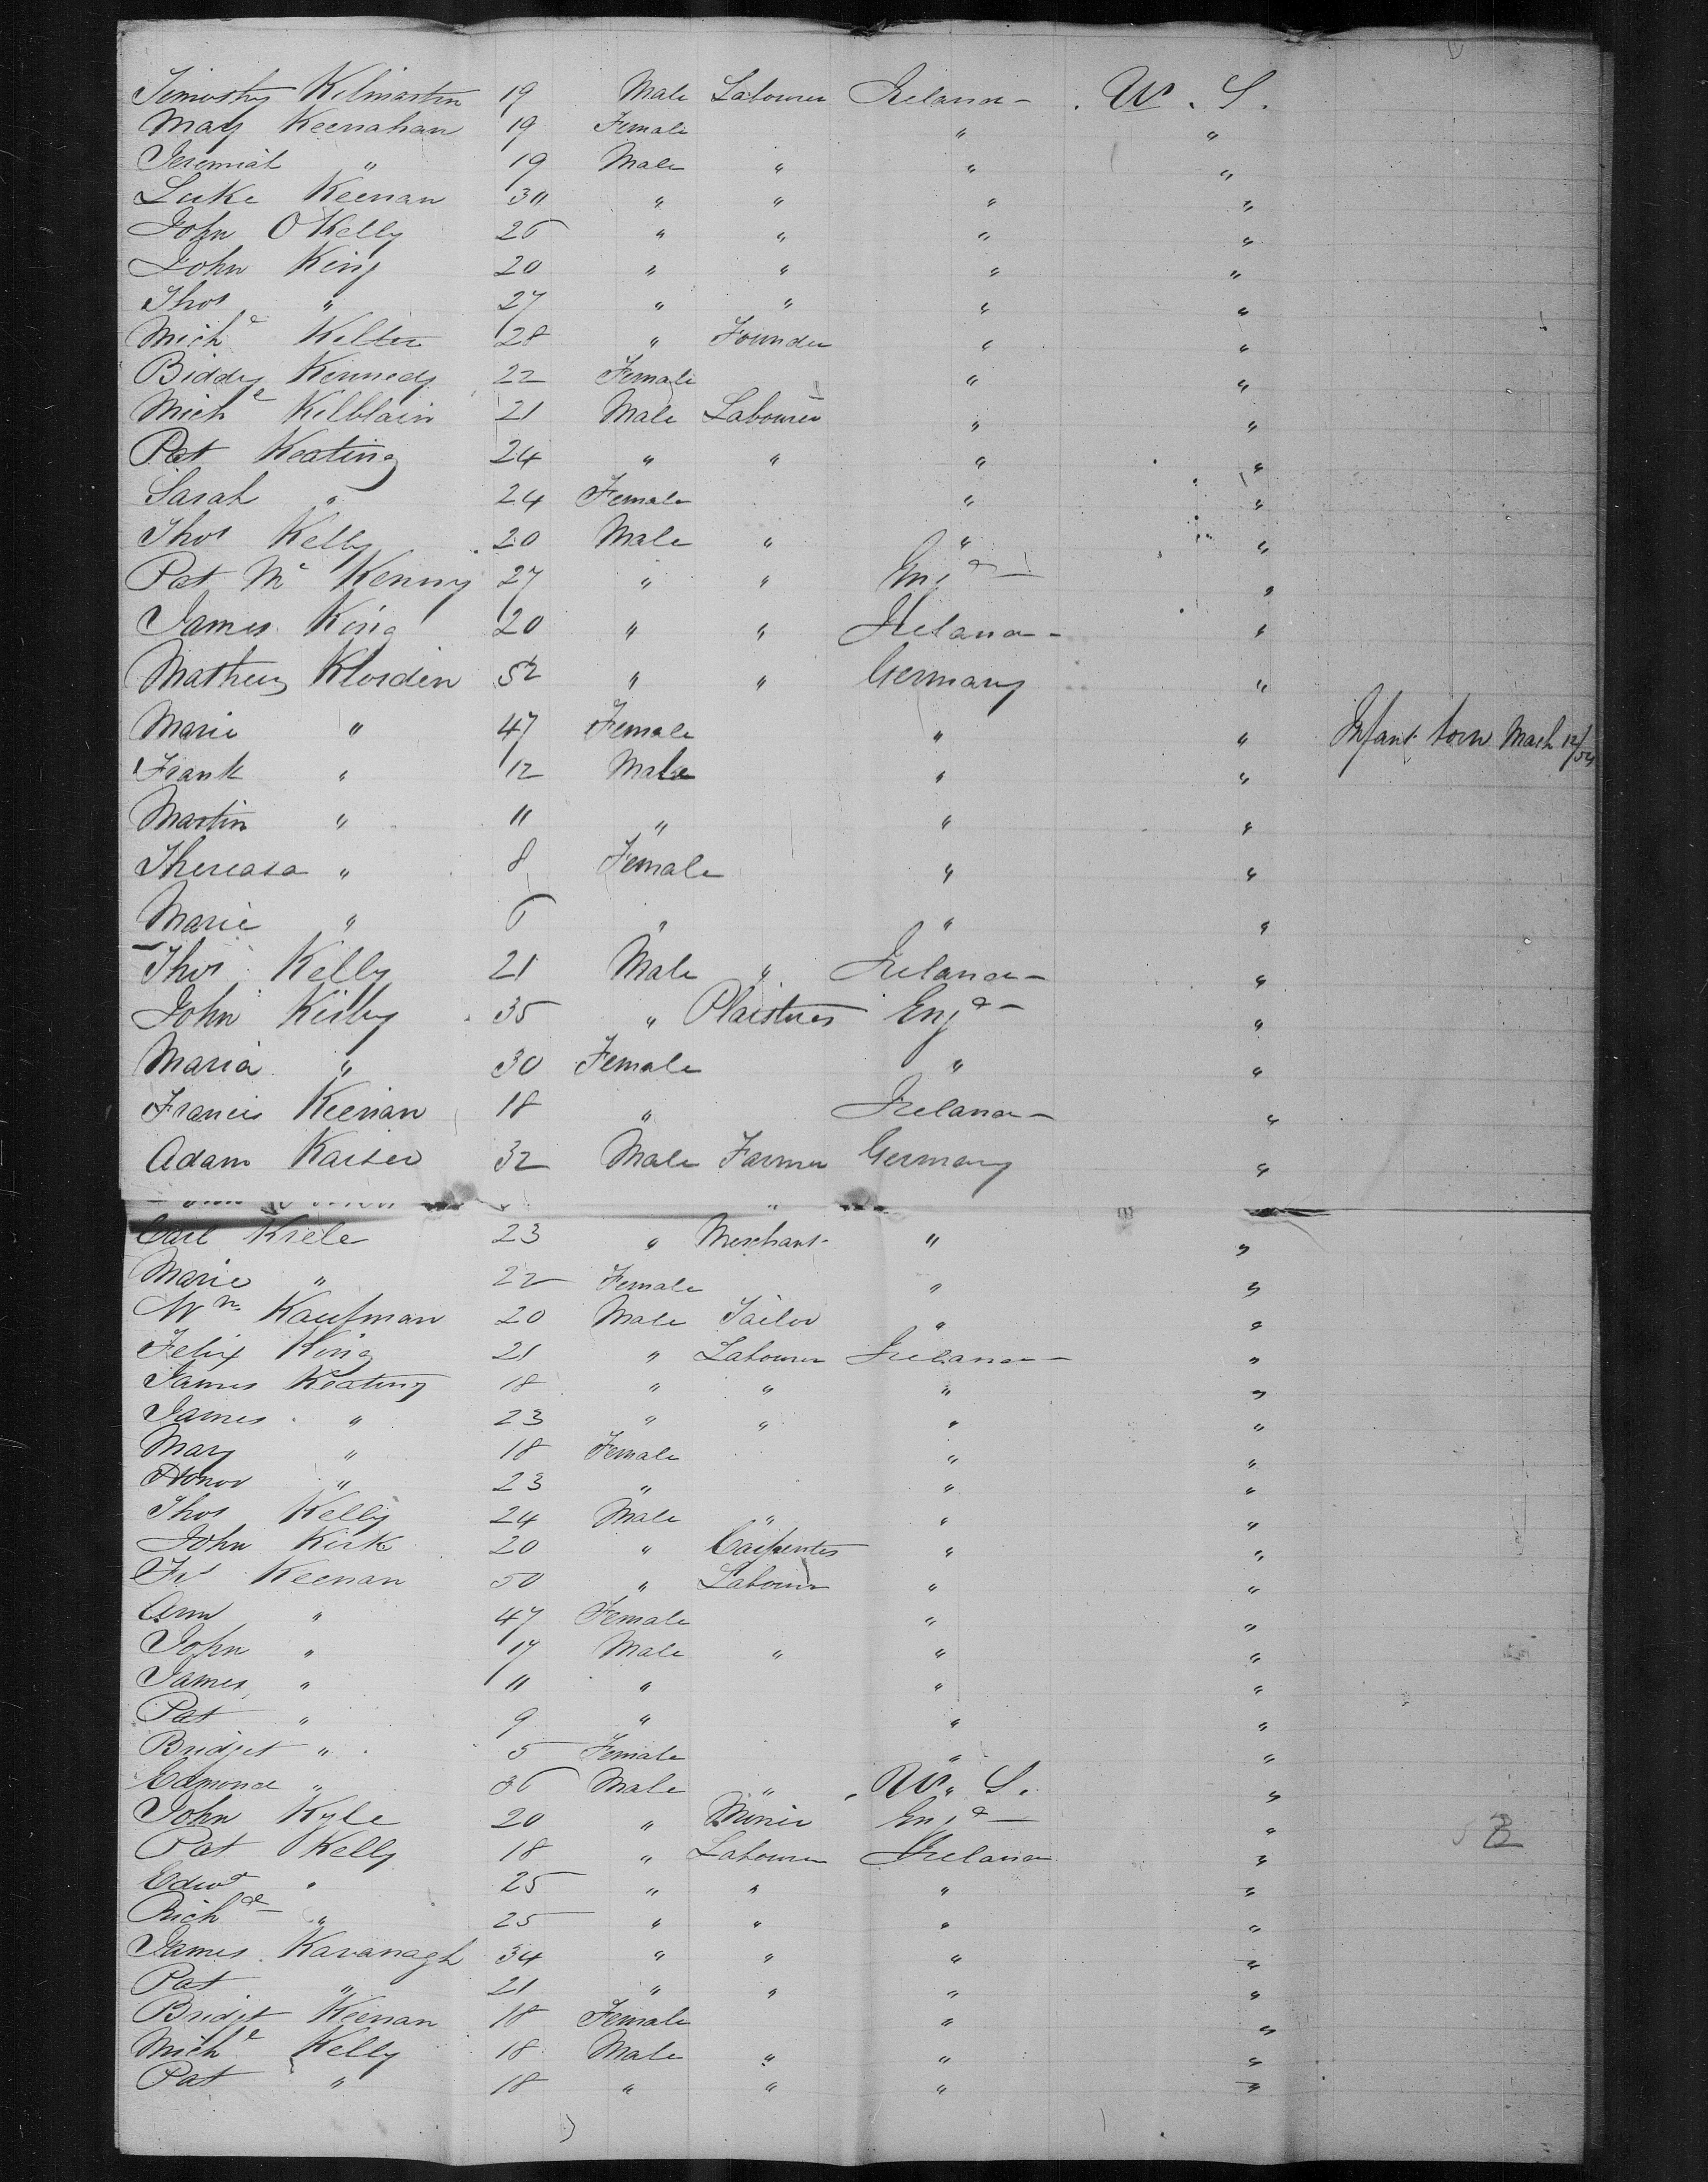 Timothy Kilmartin 19 Male Labourer Ireland . U. S.
May Keenahan 19 Female " "
Jeremiah " 19 Male " " "
Luke Keenan 30 " " " "
John O Kelly 26 " " " "
John King 20 " " " "
Thos " 27 " " " "
Mich 28 " Founder " "
Biddy Kennedy 22 Female " "
Mich Kilblain 21 Male Labourer " "
Pat Keating 24 " " " "
Sarah " 24 Female " "
Thos Kelly 20 Male " " "
Pat Mc Kenny 27 " " Engd "
James King 20 " " Ireland "
Mathew Klorden 52 " " Germany "
Marie " 47 Female " " Infant born Mach 12/54
Frank " 12 Male " "
Martin " 11 " " "
Thereasa " 8 Female " "
Marie " 6 " " "
Thos Kelly 21 Male " Ireland "
John Kirby 35 " Plaisterer Engd "
Maria " 30 Female " "
Francis Keenan 18 " Ireland "
Adam Kaiser 32 Male Farmer Germany "
Carl Kiele 23 " Merchant " "
Marie " 22 Female " "
Wm Kaufman 20 Male Tailor " "
Felix King 21 " Labourer Ireland "
James Keating 18 " " " "
James " 23 " " " "
Mary " 18 Female " "
Honor " 23 " " "
Thos Kelly 24 Male " " "
John Kirk 20 " Carpenter " "
Keenan 50 " Labourer " "
Ann " 47 Female " "
John " 17 Male " " "
James " 11 " " "
Pat " 9 " " "
Bridget " 5 Female " "
Edmond " 36 Male " U. S. "
John Kyle 20 " Miner Engd "
Pat Kelly 18 " Labourer Ireland "
Edwd " 25 " " " "
Richd " 25 " " " "
James Kavanagh 34 " " " "
Pat " 21 " " " "
Bridget Keenan 18 Female " "
Mich Kelly 18 Male " " "
Pat " 18 " " " "